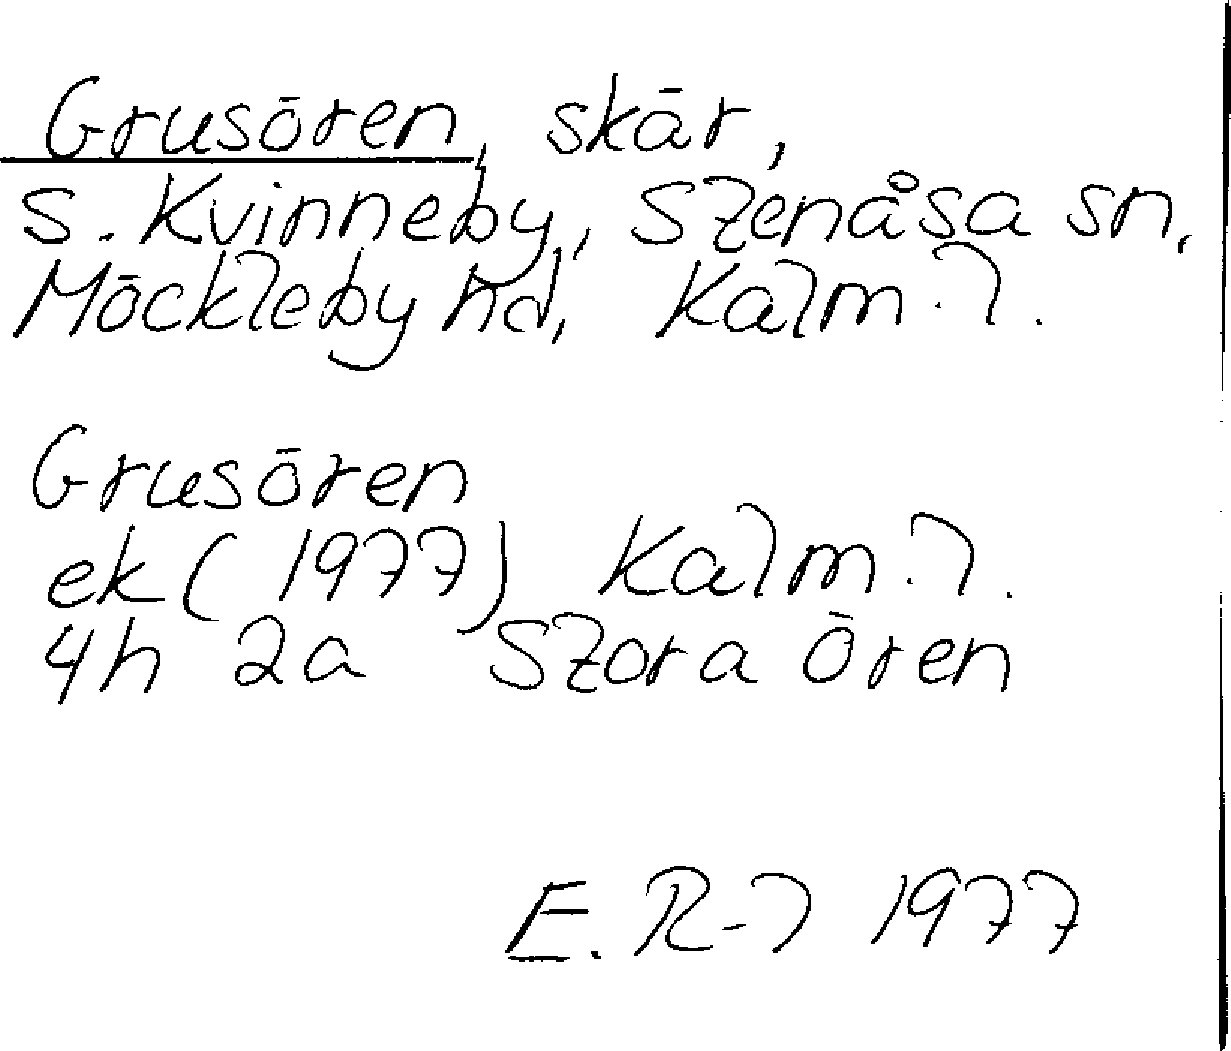 Grusören, skär,
S. Kvinneby, Stenåsa sn,
Möckleby hd, Kalm. l.
Grusören
ek (1977) Kalm. l.
4h 2a Stora Ören
E. R-l 1977